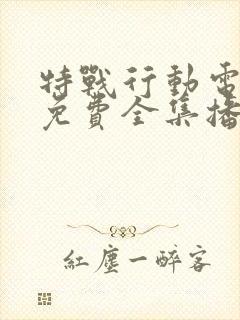 特戰行動電
免費全集播
紅塵一醉客